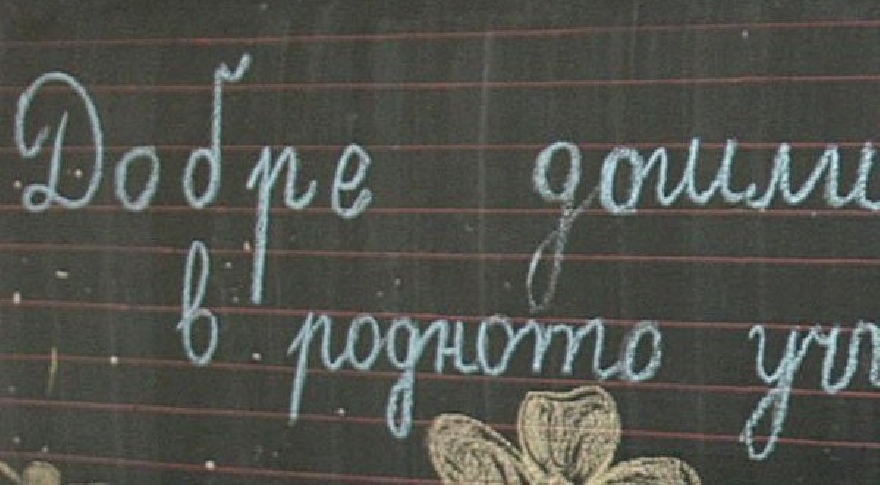 Добре дошли
в родното учи